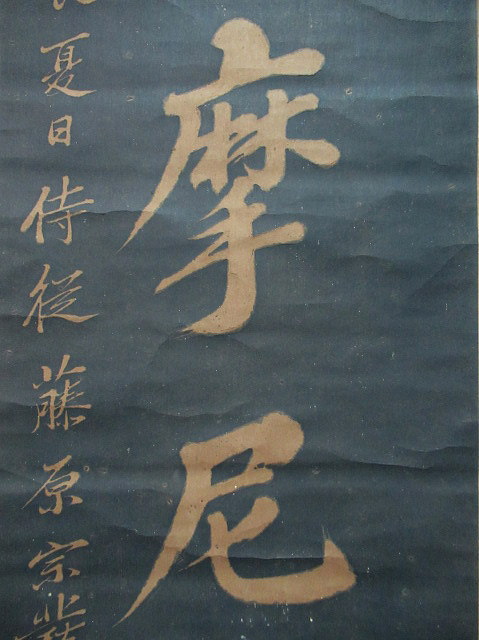 摩尼
夏日侍従藤原宗